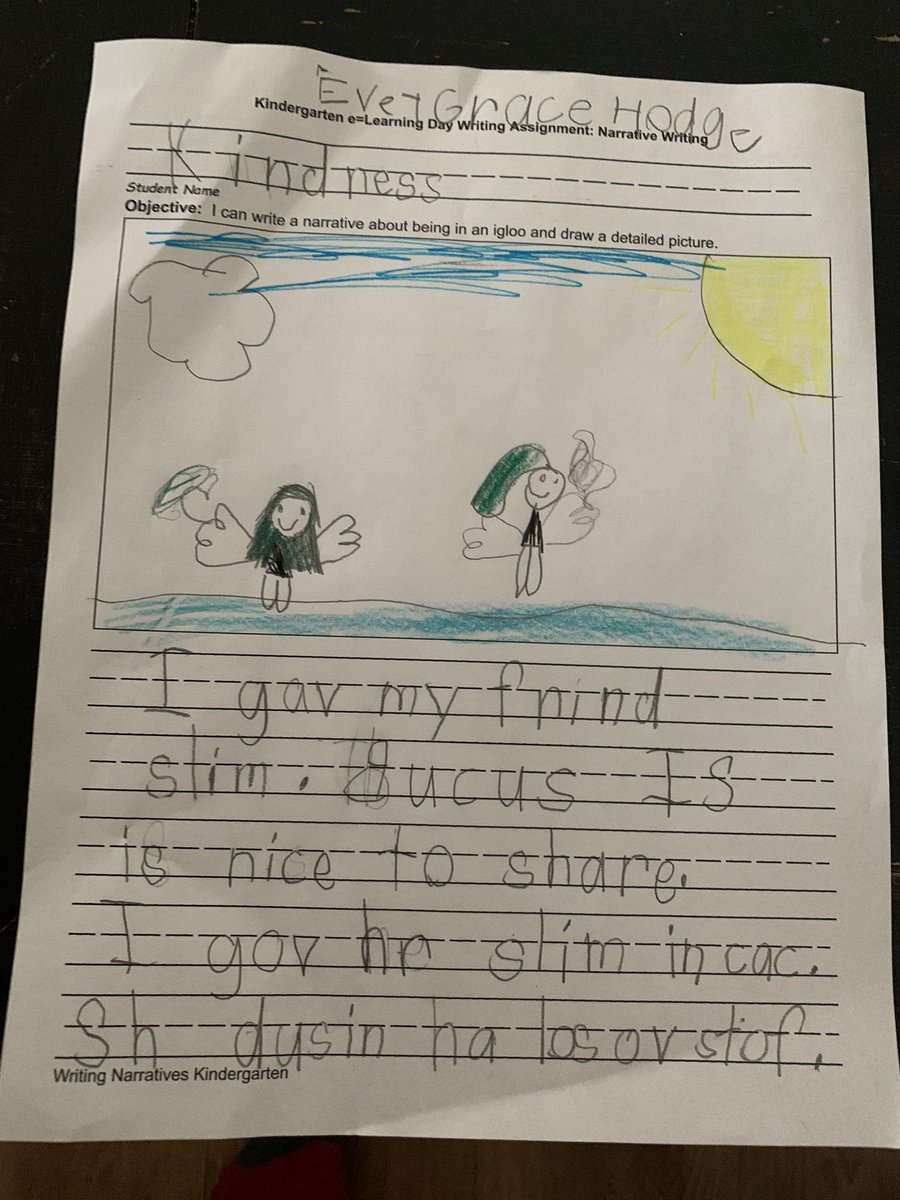 Ever Grace Hodge
Kindergarten e=Learning Day Writing Assignment: Narrative Writing
Kindness
Student Name
Objective: I can write a narrative about being in an igloo and draw a detailed picture.
I gav my frind
slim. Bucus IS
is nice to share.
I gav hr slim in cac.
Sh dusin ha los ov stof.
Writing Narratives Kindergarten